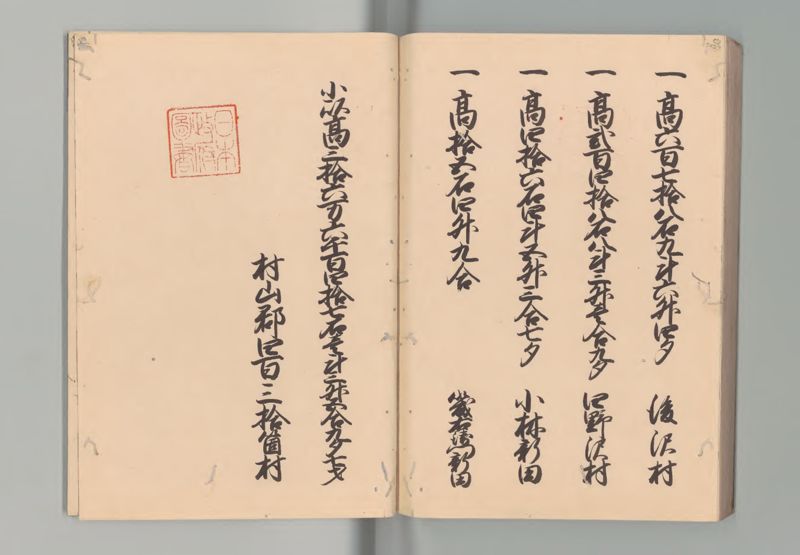 一 高六百七拾八石九斗六升四夕 後沢村
一 高弐百四拾八石八斗三升壱合九夕 田野沢村
一 高四拾六石四斗五升三合七夕 小林新田
一 高拾五石四升九合 新田
小以高三拾六万六千百四拾七石壱斗三升四合九夕七才
村山郡四百三拾箇村
日本政府図書